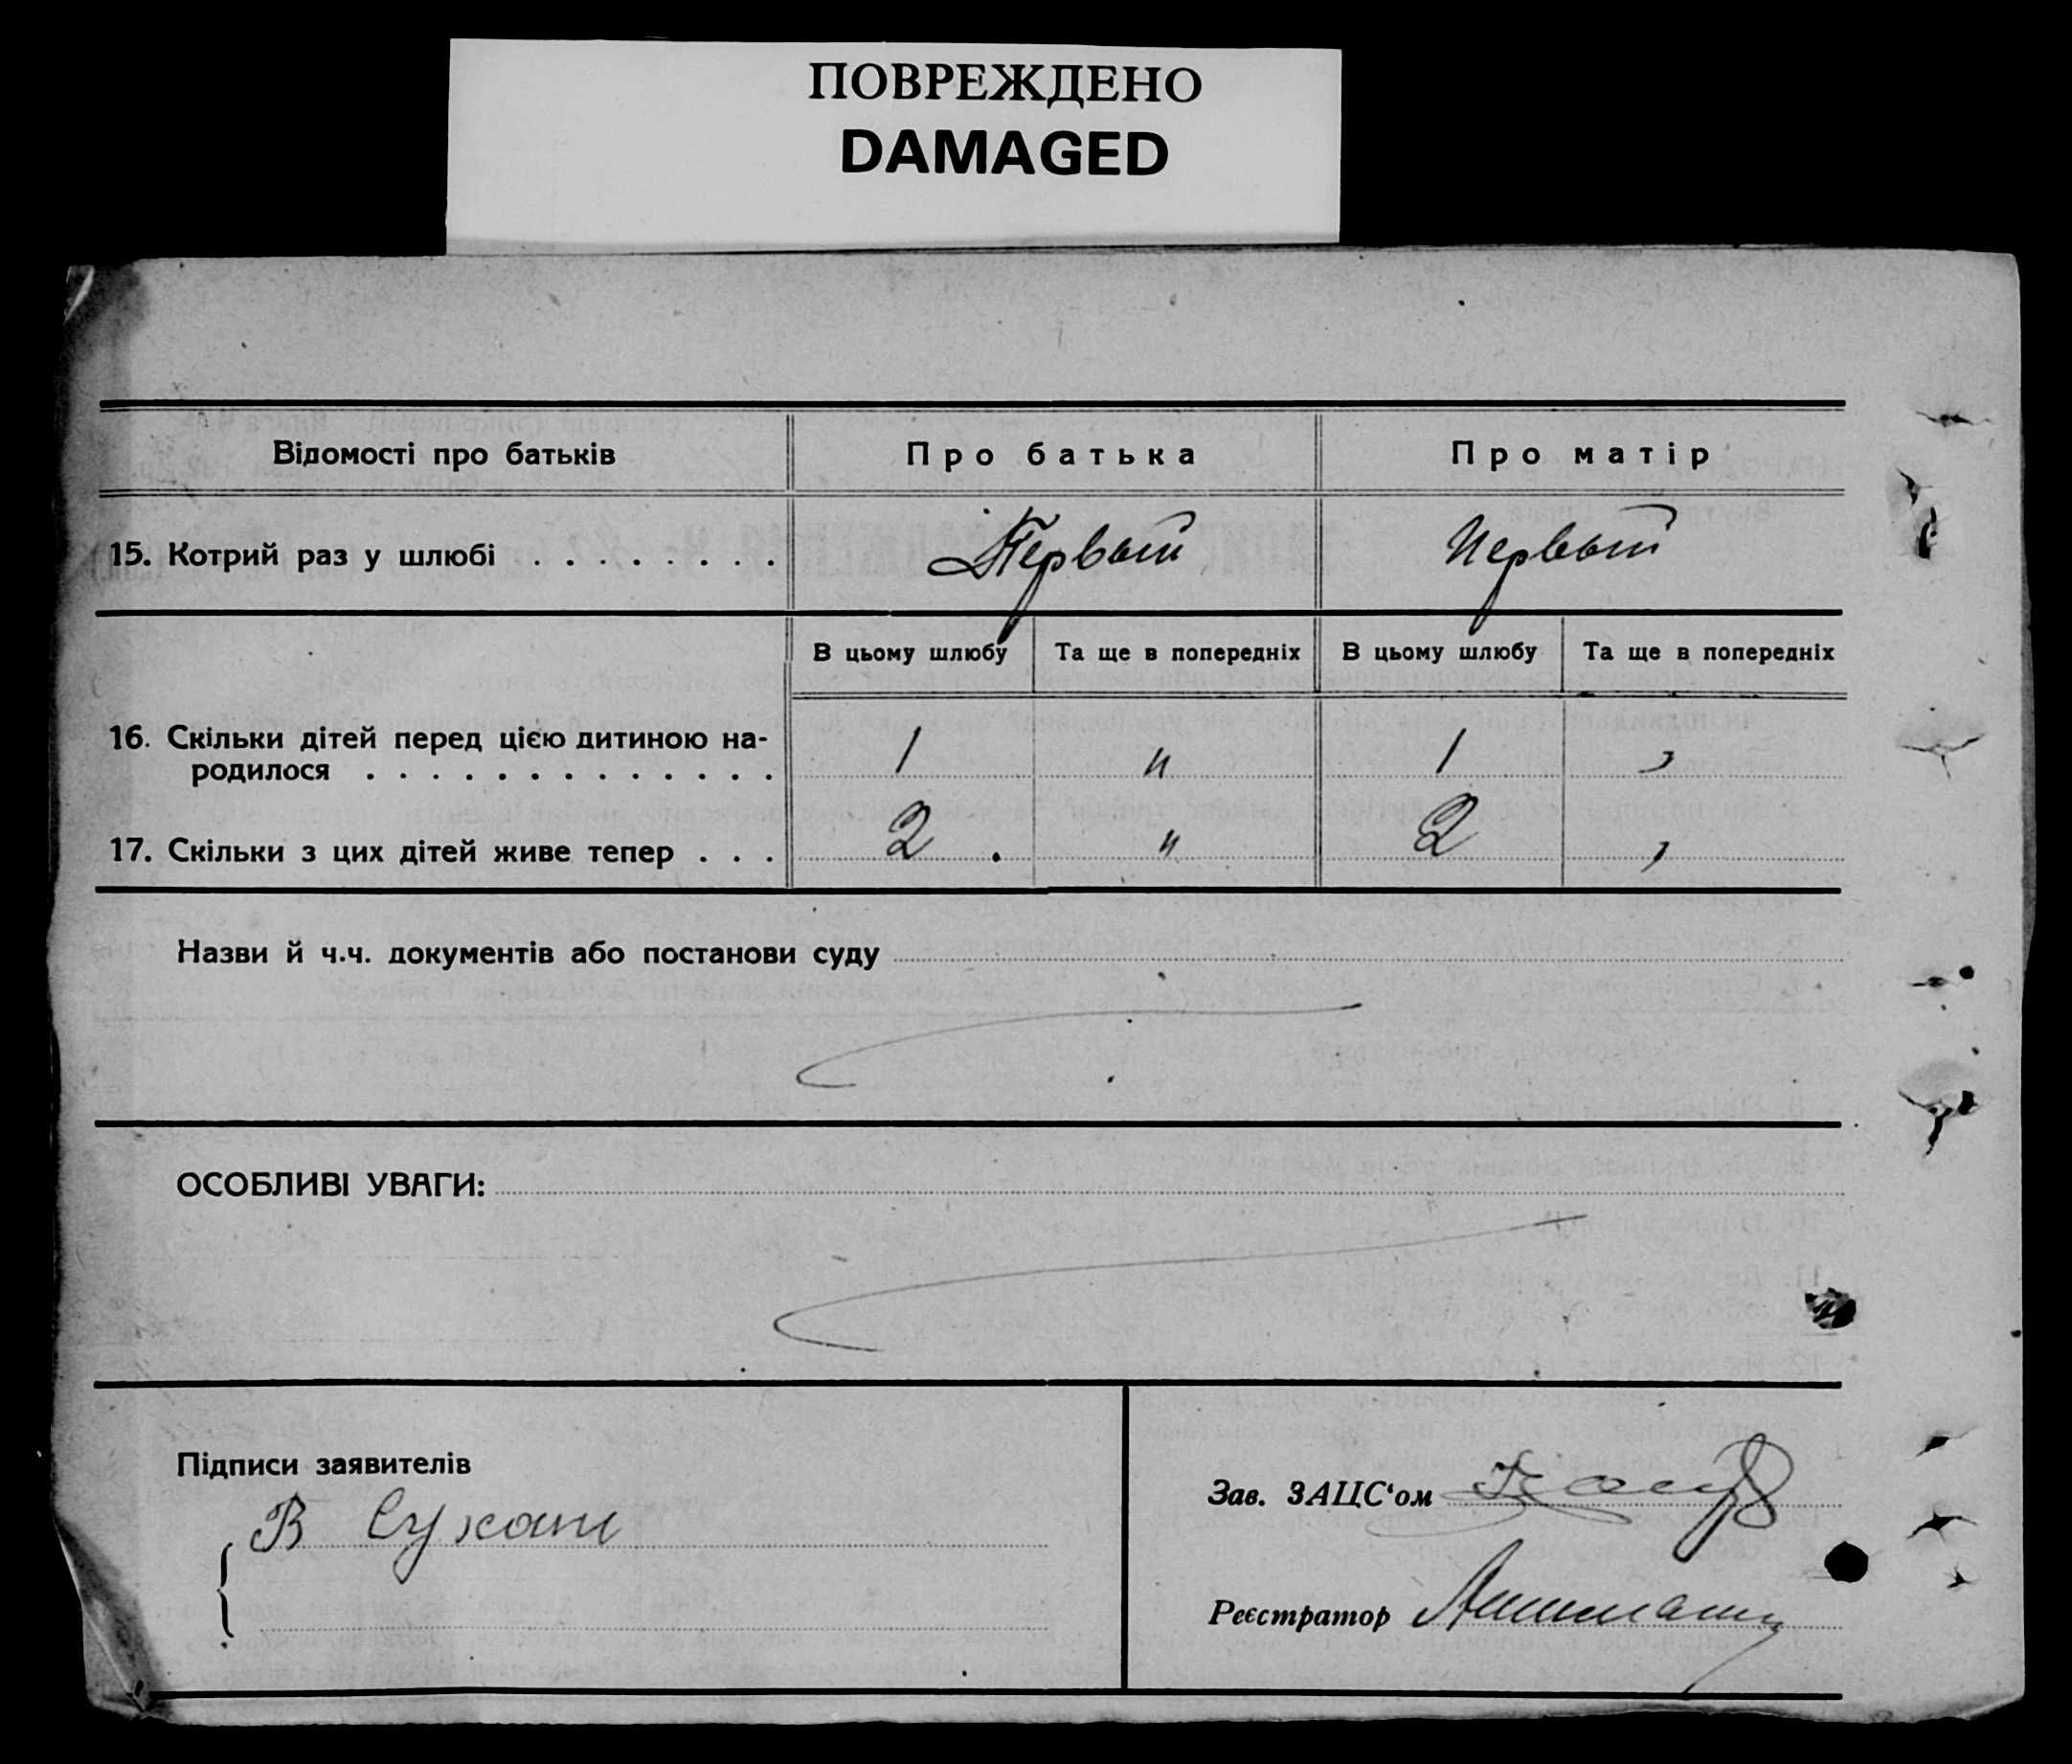 ПОВРЕЖДЕНО
DAMAGED
Відомості про батьків Про батька Про матір
15. Котрий раз у шлюбі . . . . . . . . . Первый Первый
В цьому шлюбу Та ще в попередніх В цьому шлюбу Та ще в попередніх
16. Скільки дітей перед цією дитиною на-
родилося . . . . . . . . . . . . . 1 " 1 "
17. Скільки з цих дітей живе тепер . . . 2 " 2 "
Назви й ч.ч. документів або постанови суду
ОСОБЛИВІ УВАГИ:
Підписи заявителів
В
Зав. ЗАЦС‘ом
Реєстратор